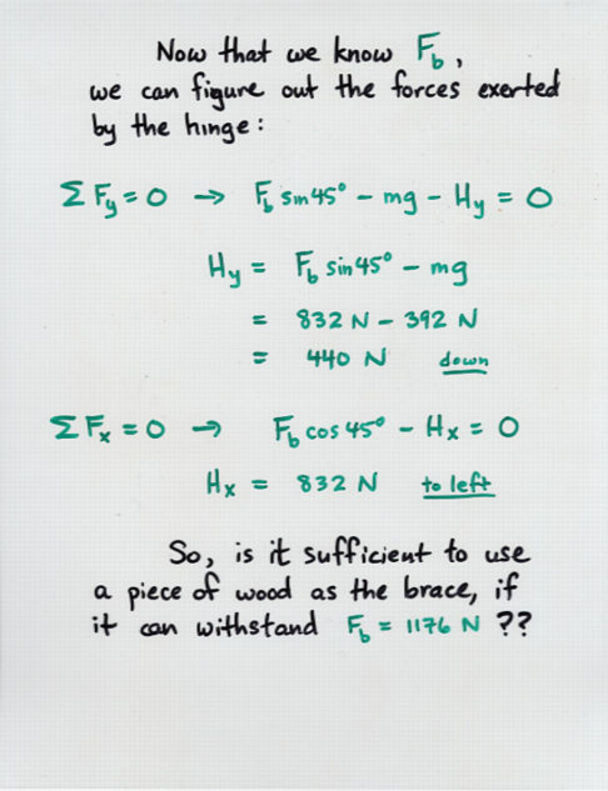 Now that we know F_b,
we can figure out the forces exerted
by the hinge:
ΣF_y = 0 → F_b sin 45° - mg - H_y = 0
H_y = F_b sin 45° - mg
= 832 N - 392 N
= 440 N down
ΣF_x = 0 → F_b cos 45° - H_x = 0
H_x = 832 N to left
So, is it sufficient to use
a piece of wood as the brace, if
it can withstand F_b = 1176 N ??